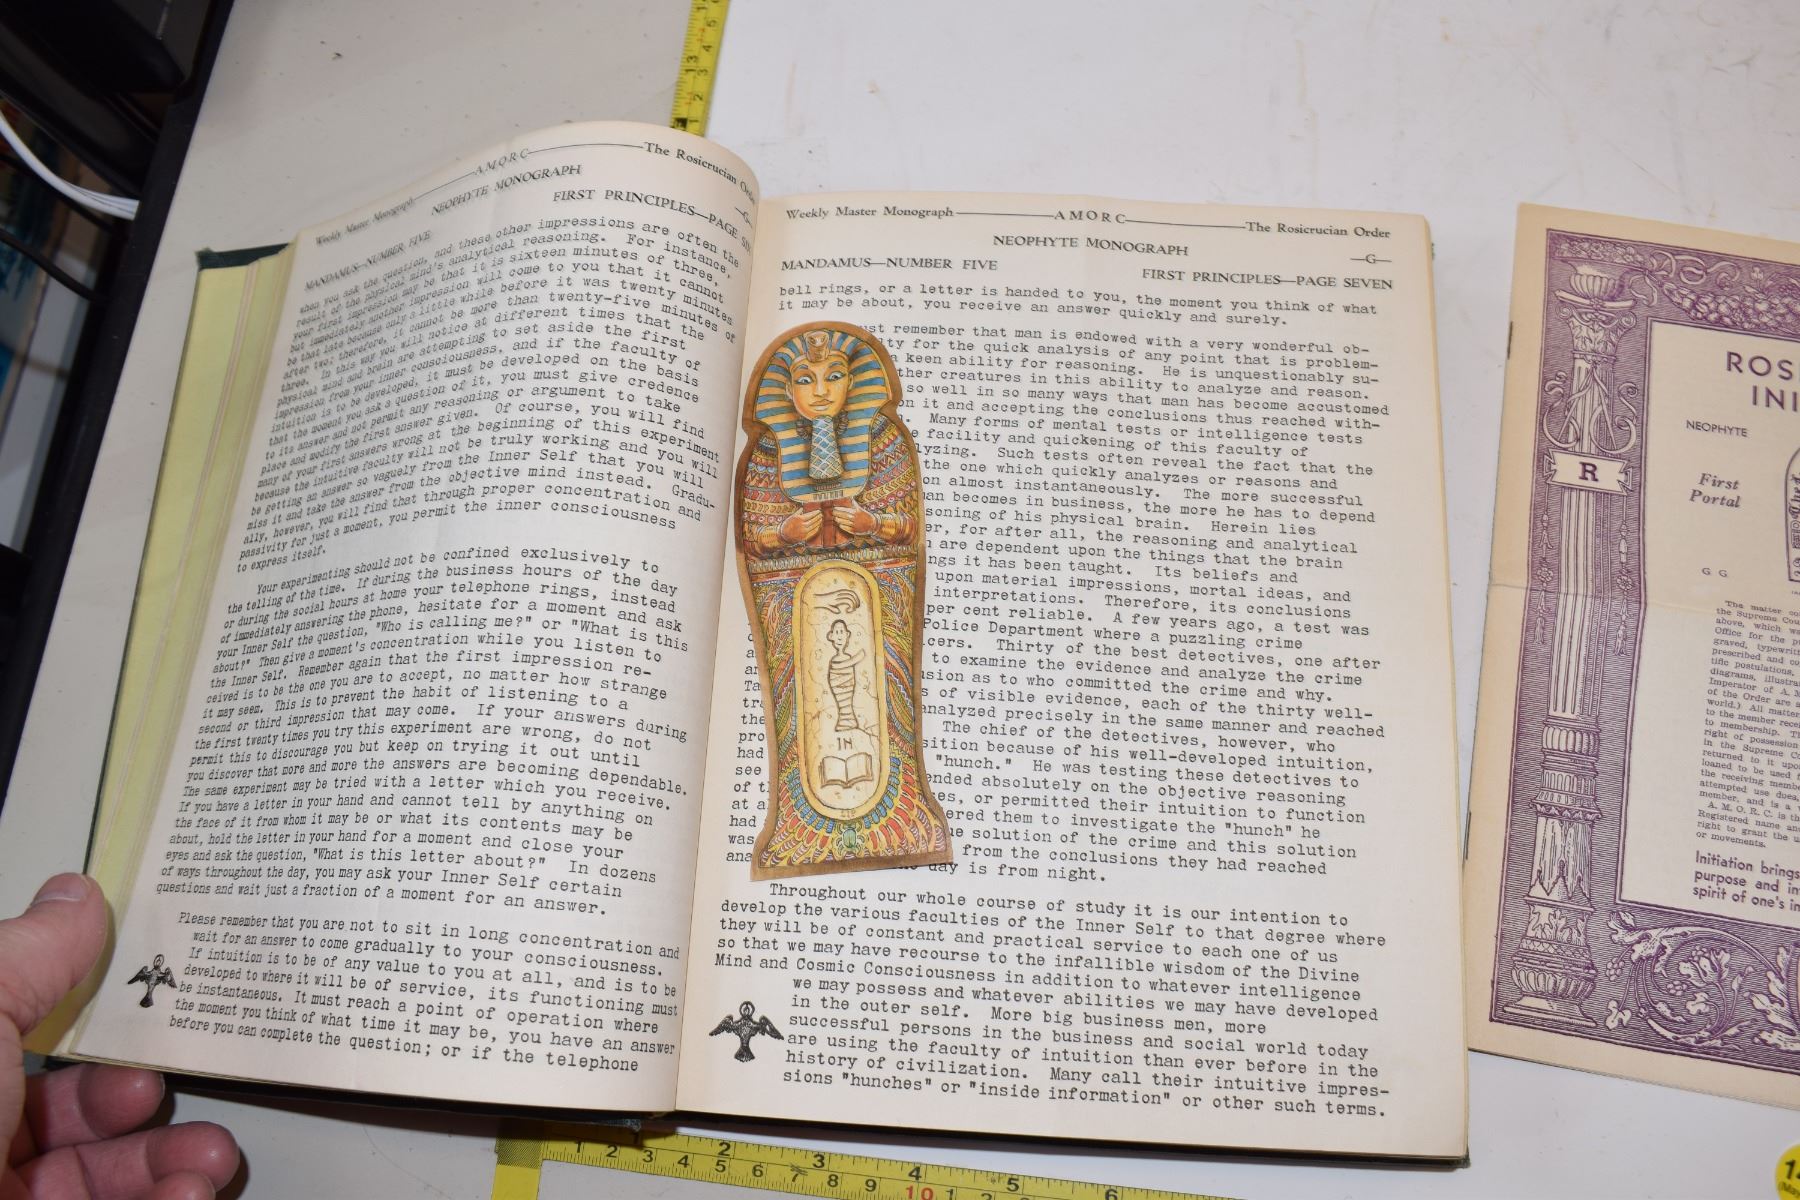 Weekly Master Monograph AMORC The Rosicrucian
NEOPHYTE MONOGRAPH
MANDAMUS—NUMBER FIVE
FIRST PRINCIPLES—PAGE
when you ask the question, and these other impressions are often the
result of the physical mind's analytical reasoning. For instance,
your first impression may be that it is sixteen minutes of three,
but immediately another impression will come to you that it cannot
be that late because only a little while before it was twenty minutes
after two; therefore, it cannot be more than twenty-five minutes of
three. In this way you will notice at different times that the
physical mind and brain are attempting to set aside the first
impression from your inner consciousness, and if the faculty of
intuition is to be developed, it must be developed on the basis
that the moment you ask a question of it, you must give credence
to its answer and not permit any reasoning or argument to take
place and modify the first answer given. Of course, you will find
many of your first answers wrong at the beginning of this experiment
because the intuitive faculty will not be truly working and you will
be getting an answer so vaguely from the Inner Self that you will
miss it and take the answer from the objective mind instead. Gradu-
ally, however, you will find that through proper concentration and
passivity for just a moment, you permit the inner consciousness
to express itself.
Your experimenting should not be confined exclusively to
the telling of the time. If during the business hours of the day
or during the social hours at home your telephone rings, instead
of immediately answering the phone, hesitate for a moment and ask
your Inner Self the question, "Who is calling me?" or "What is this
about?" Then give a moment's concentration while you listen to
the Inner Self. Remember again that the first impression re-
ceived is to be the one you are to accept, no matter how strange
it may seem. This is to prevent the habit of listening to a
second or third impression that may come. If your answers during
the first twenty times you try this experiment are wrong, do not
permit this to discourage you but keep on trying it out until
you discover that more and more the answers are becoming dependable.
The same experiment may be tried with a letter which you receive.
If you have a letter in your hand and cannot tell by anything on
the face of it from whom it may be or what its contents may be
about, hold the letter in your hand for a moment and close your
eyes and ask the question, "What is this letter about?" In dozens
of ways throughout the day, you may ask your Inner Self certain
questions and wait just a fraction of a moment for an answer.
Please remember that you are not to sit in long concentration and
wait for an answer to come gradually to your consciousness.
If intuition is to be of any value to you at all, and is to be
developed to where it will be of service, its functioning must
be instantaneous. It must reach a point of operation where
the moment you think of what time it may be, you have an answer
before you can complete the question; or if the telephone
Weekly Master Monograph AMORC The Rosicrucian Order
NEOPHYTE MONOGRAPH —G—
MANDAMUS—NUMBER FIVE FIRST PRINCIPLES—PAGE SEVEN
bell rings, or a letter is handed to you, the moment you think of what
it may be about, you receive an answer quickly and surely.
ust remember that man is endowed with a very wonderful ob-
lty for the quick analysis of any point that is problem-
a keen ability for reasoning. He is unquestionably su-
ther creatures in this ability to analyze and reason.
so well in so many ways that man has become accustomed
on it and accepting the conclusions thus reached with-
Many forms of mental tests or intelligence tests
e facility and quickening of this faculty of
lyzing. Such tests often reveal the fact that the
the one which quickly analyzes or reasons and
on almost instantaneously. The more successful
an becomes in business, the more he has to depend
soning of his physical brain. Herein lies
er, for after all, the reasoning and analytical
are dependent upon the things that the brain
ngs it has been taught. Its beliefs and
upon material impressions, mortal ideas, and
interpretations. Therefore, its conclusions
per cent reliable. A few years ago, a test was
Police Department where a puzzling crime
cers. Thirty of the best detectives, one after
a to examine the evidence and analyze the crime
an sion as to who committed the crime and why.
Ta s of visible evidence, each of the thirty well-
tra analyzed precisely in the same manner and reached
the The chief of the detectives, however, who
pro sition because of his well-developed intuition,
had "hunch." He was testing these detectives to
see ended absolutely on the objective reasoning
of t es, or permitted their intuition to function
at a ered them to investigate the "hunch" he
had e solution of the crime and this solution
was from the conclusions they had reached
ana day is from night.
IN
Throughout our whole course of study it is our intention to
develop the various faculties of the Inner Self to that degree where
they will be of constant and practical service to each one of us
so that we may have recourse to the infallible wisdom of the Divine
Mind and Cosmic Consciousness in addition to whatever intelligence
we may possess and whatever abilities we may have developed
in the outer self. More big business men, more
successful persons in the business and social world today
are using the faculty of intuition than ever before in the
history of civilization. Many call their intuitive impres-
sions "hunches" or "inside information" or other such terms.
ROS
INI
NEOPHYTE
First
Portal
R
G. G.
The matter
the Supreme Cou
above, which w
Office for the p
graved, typewritt
prescribed and co
tific postulations,
diagrams, illustra
Imperator of A. M
of the Order are a
world.) All matter
to the member rece
to membership. T
right of possession
in the Supreme Co
returned to it upon
loaned to be used
the receiving membe
attempted use does,
member, and is a v
A. M. O. R. C. is th
Registered name an
right to grant the u
or movements.
Initiation brings
purpose and in
spirit of one's in
1 2 3 4 5 6
3 4 5 6 7 8 9 10 1 2